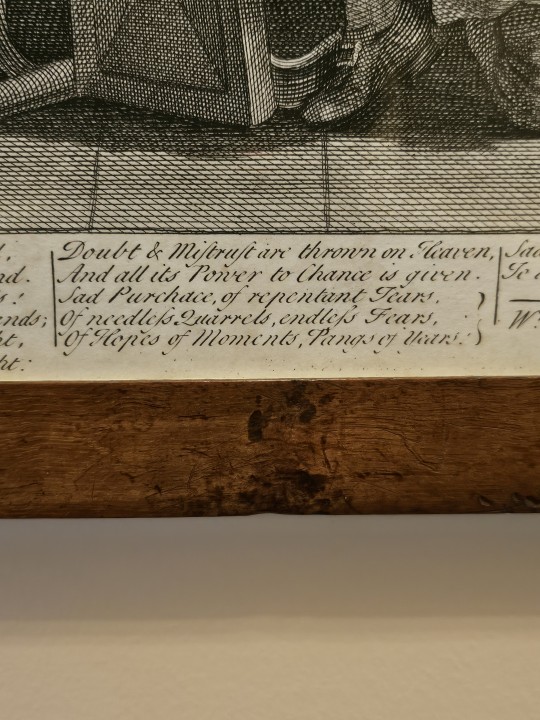 Doubt & Mistrust are thrown on Heaven,
And all its Power to Chance is given.
Sad Purchace, of repentant Tears,
Of needless Quarrels, endless Fears,
Of Hopes of Moments, Pangs of Years!
Sad